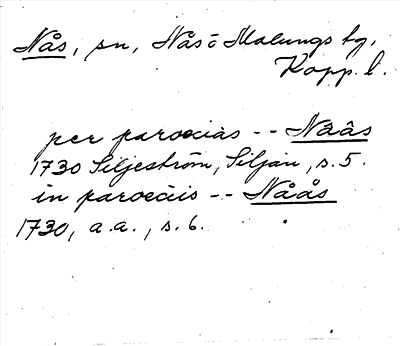 Nås, sn, Nås o Malungs tg,
Kopp. l.
per paroecias -- Nåås
1730 Siljeström, Siljan, s. 5.
in paroeciis -- Nåås
1730, a.a., s. 6.